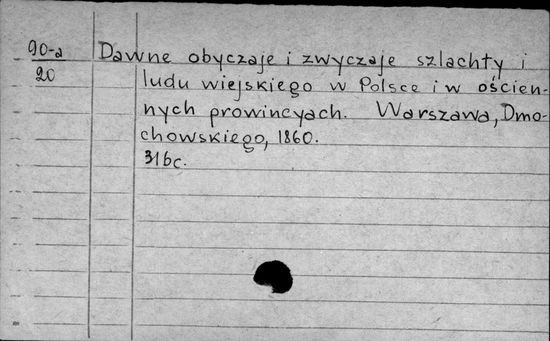 90-a Dawne obyczaje i zwyczaje szlachty i
20 ludu wiejskiego w Polsce i w ościen-
nych prowincyach. Warszawa, Dmo-
chowskiego, 1860.
316c.